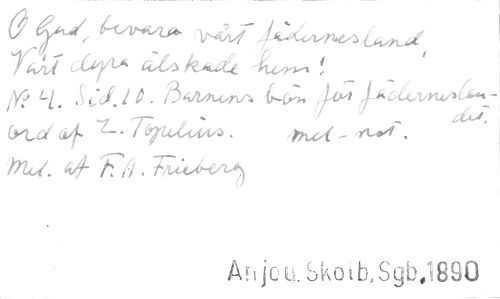 O Gud, bevara vårt fädernesland,
Vårt dyra älskade hem!
No 4. Sid. 10. Barnens bön för fäderneslan-
det.
ord af Z. Topelius. mel-not.
Mel. af F. A. Frieberg
Anjou, Skolb, Sgb, 1890